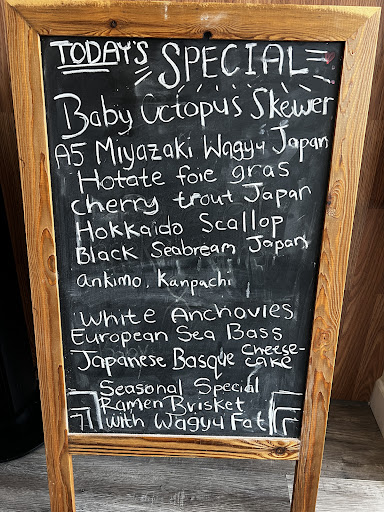 TODAY'S SPECIAL
Baby Octopus Skewer
A5 Miyazaki Wagyu Japan
Hotate foie gras
cherry trout Japan
Hokkaido Scallop
Black Seabream Japan
ankimo, Kanpachi
White Anchovies
European Sea Bass
Japanese Basque Cheese-
cake
Seasonal Special
Ramen Brisket
with Wagyu Fat